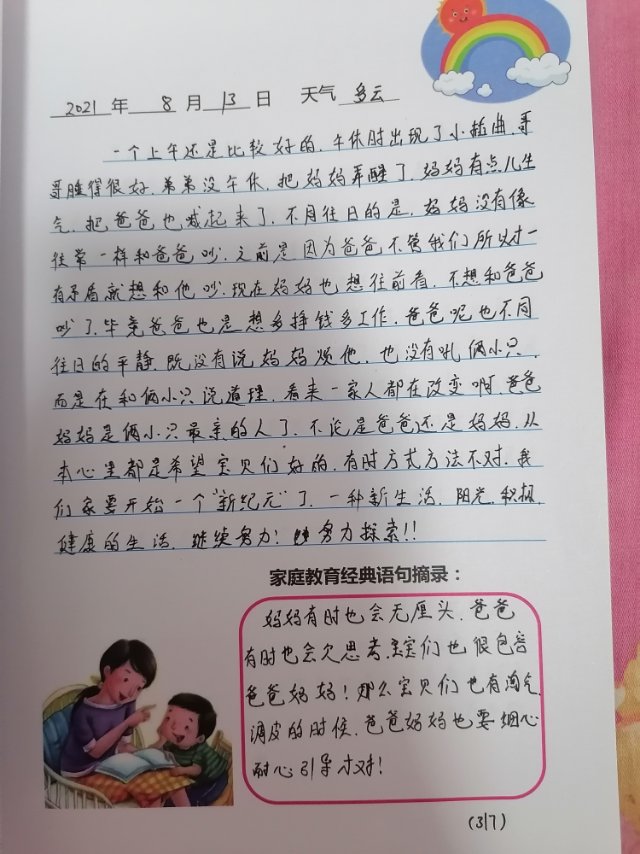 2021 年 8 月 13 日 天气 多云
一个上午还是比较好的，午休时出现了小插曲，哥
哥睡得很好，弟弟没午休，把妈妈弄醒了，妈妈有点儿生
气，把爸爸也喊起来了，不同往日的是，妈妈没有像
往常一样和爸爸吵，之前是因为爸爸不管我们所以才一
有矛盾就想和他吵，现在妈妈也想往前看，不想和爸爸
吵了，毕竟爸爸也是想多挣钱多工作，爸爸呢也不同
往日的平静，既没有说妈妈烦他，也没有吼俩小只，
而是在和俩小只说道理，看来一家人都在改变啊，爸爸
妈妈是俩小只最亲的人了，不论是爸爸还是妈妈，从
本心里都是希望宝贝们好的，有时方式方法不对，我
们家要开始一个“新纪元”了，一种新生活，阳光，积极，
健康的生活，继续努力！努力探索!!
家庭教育经典语句摘录：
妈妈有时也会无厘头，爸爸
有时也会欠思考，宝宝们也很包容
爸爸妈妈！那么宝贝们也有淘气，
调皮的时候，爸爸妈妈也要细心
耐心引导才对！
(317)